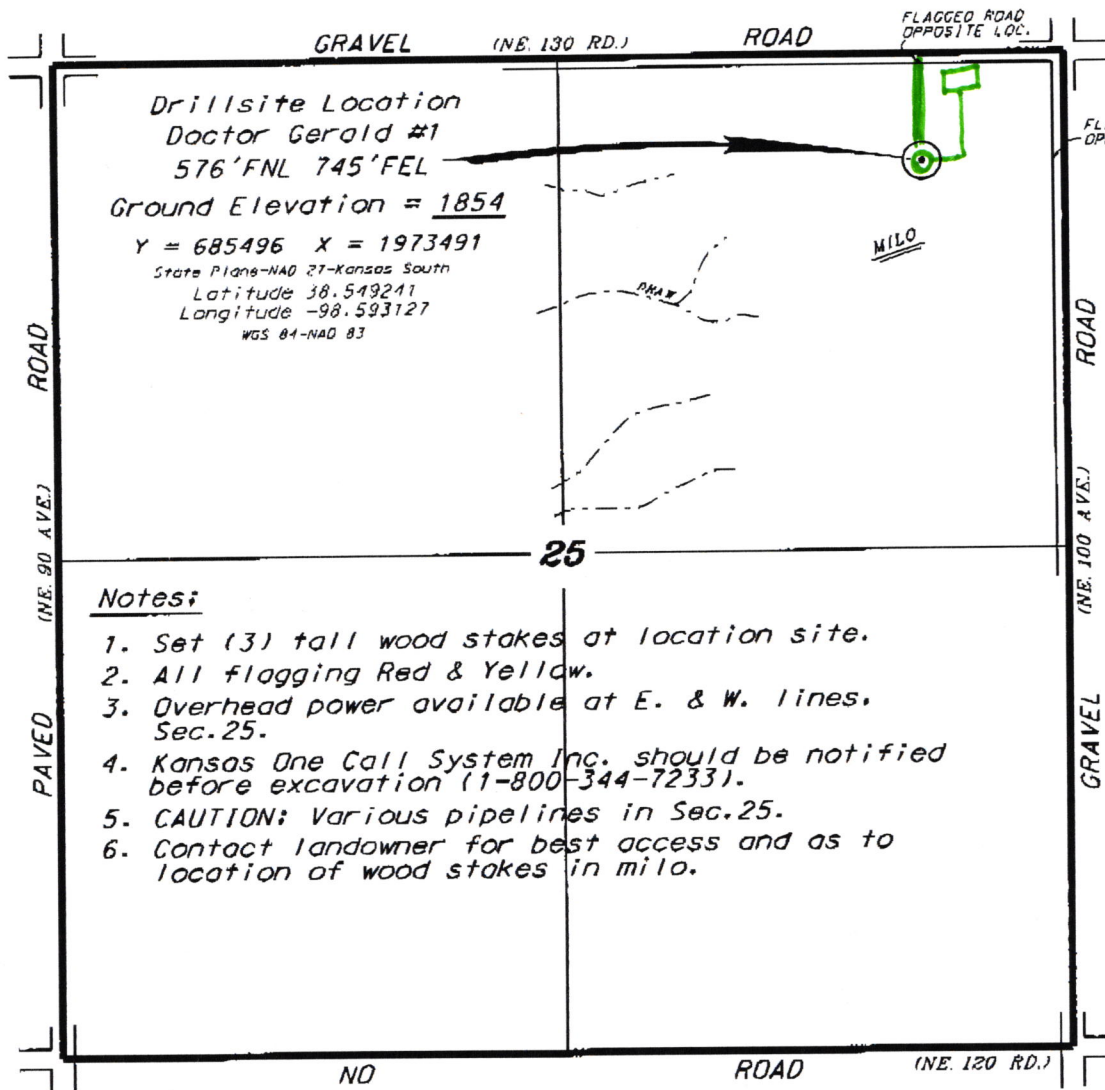 FLAGGED ROAD
OPPOSITE LOC.
GRAVEL (NE. 130 RD.) ROAD
Drillsite Location
Doctor Gerald #1
576'FNL 745'FEL
Ground Elevation = 1854
Y = 685496 X = 1973491
State Plane-NAD 27-Kansas South
Latitude 38.549241
Longitude -98.593127
WGS 84-NAD 83
FL
OP
MILO
DRAW
PAVED (NE. 90 AVE.) ROAD
GRAVEL (NE. 100 AVE.) ROAD
25
Notes:
1. Set (3) tall wood stakes at location site.
2. All flagging Red & Yellow.
3. Overhead power available at E. & W. lines.
Sec.25.
4. Kansas One Call System Inc. should be notified
before excavation (1-800-344-7233).
5. CAUTION: Various pipelines in Sec.25.
6. Contact landowner for best access and as to
location of wood stakes in milo.
NO ROAD (NE. 120 RD.)